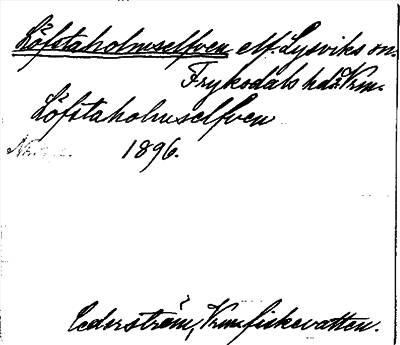 Löfstaholmselfven, ell. Lysviks sn.
Fryksdals hd. Vrm.
Löfstaholmselfven
1896.
Cederström, Vrm fiskevatten.